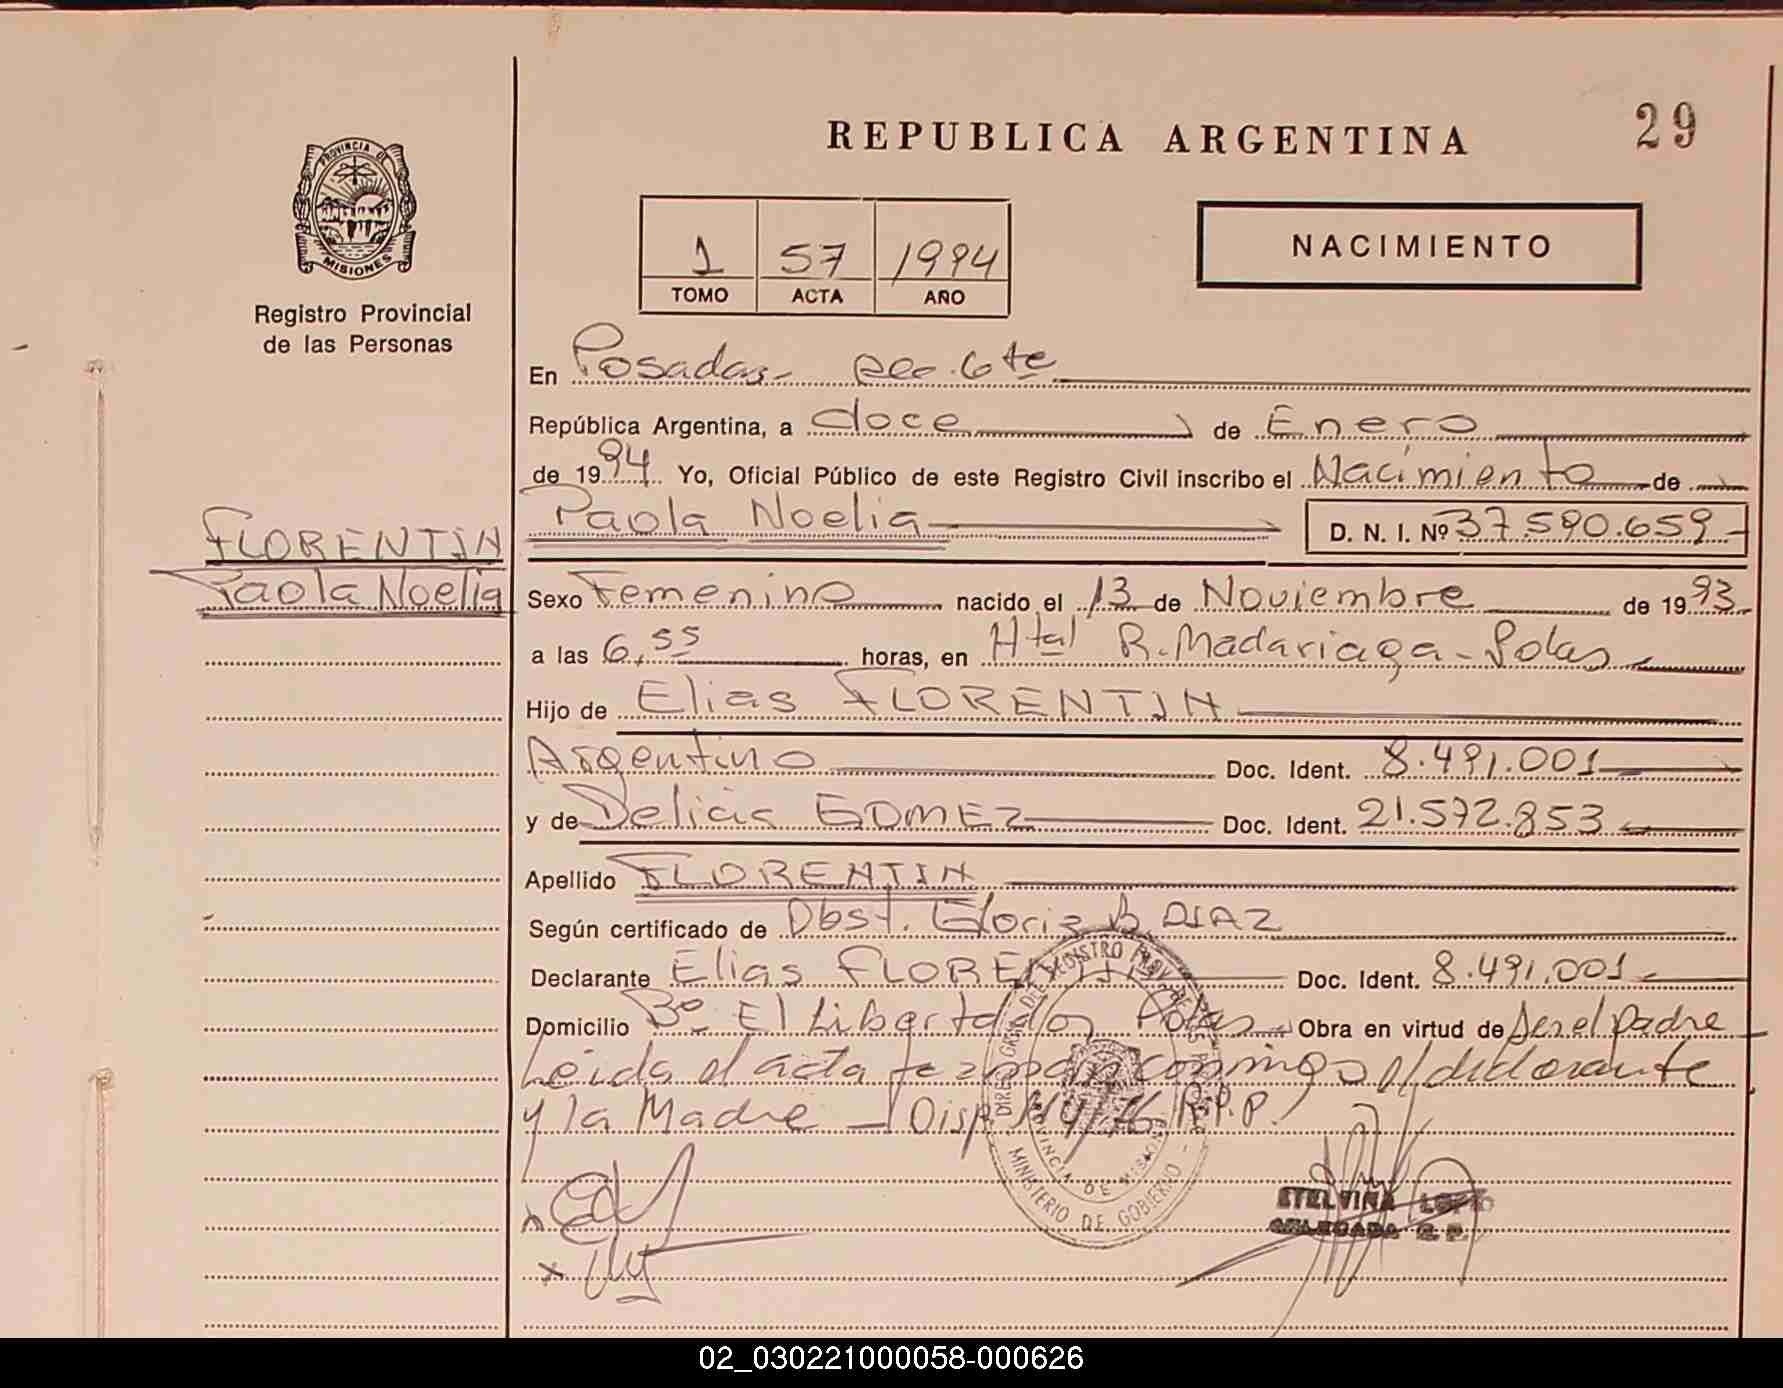 REPUBLICA ARGENTINA
29
PROVINCIA DE
MISIONES
Registro Provincial
de las Personas
1 57 1994
TOMO ACTA AÑO
NACIMIENTO
En Posadas - 6te
República Argentina, a doce de Enero
de 1994 Yo, Oficial Público de este Registro Civil inscribo el Nacimiento de
Paola Noelia D. N. I. Nº 37.590.659
FLORENTIN
Paola Noelia
Sexo Femenino nacido el 13 de Noviembre de 1993
a las 6,55 horas, en Htal R. Madariaga - Pdas
Hijo de Elias FLORENTIN
Argentino Doc. Ident. 8.491.001
y de Delicia GOMEZ Doc. Ident. 21.572.853
Apellido FLORENTIN
Según certificado de Obst. Gloria B. DIAZ
Declarante Elias FLORENTIN Doc. Ident. 8.491.001
Domicilio Bº El Libertador Pdas Obra en virtud de Ser el padre
Leida el acta firman conmigo el declarante
y la Madre - Disp. R.P.P.
MINISTERIO DE GOBIERNO
PROVINCIA DE MISIONES
ETELVINA
DELEGADA
02_030221000058-000626